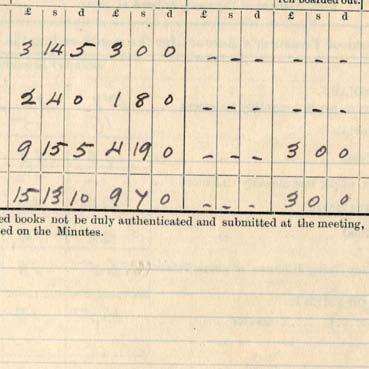 ren boarded out.
£ s d £ s d £ s d £ s d
3 14 5 3 0 0 - - - - - -
2 4 0 1 8 0 - - - - - -
9 15 5 4 19 0 - - - 3 0 0
15 13 10 9 7 0 - - - 3 0 0
ed books not be duly authenticated and submitted at the meeting,
ed on the Minutes.